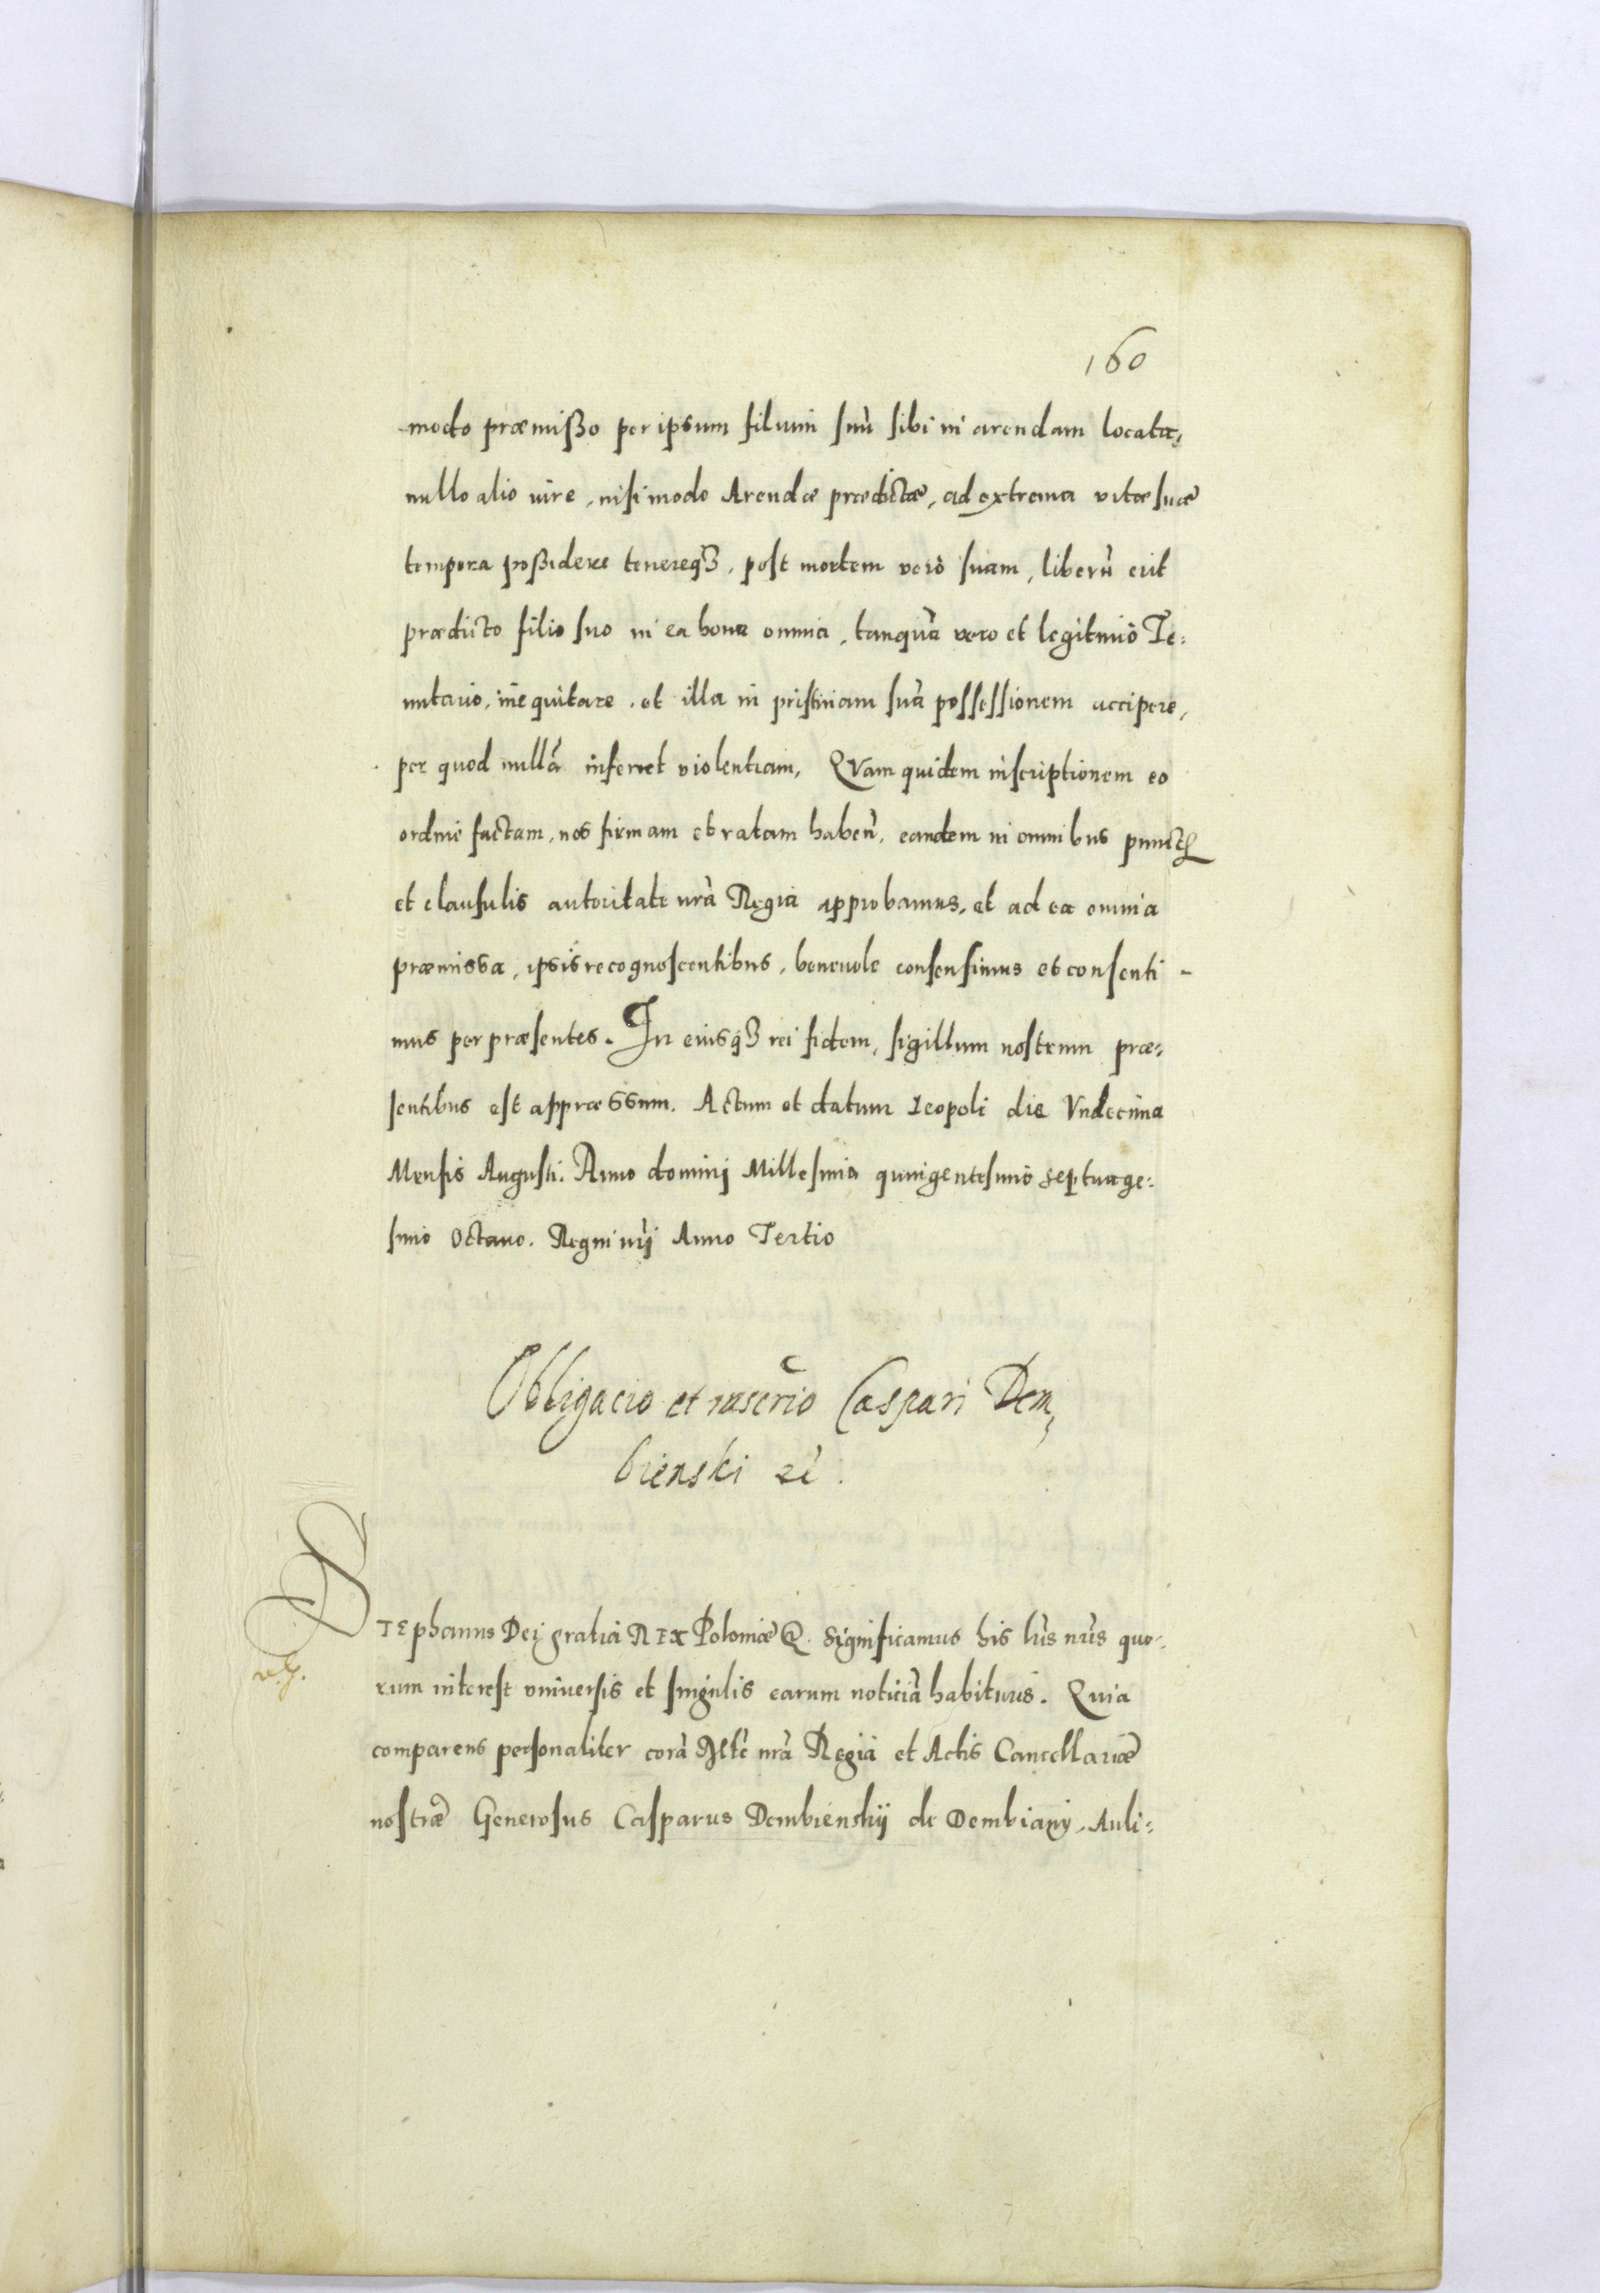 160
modo præmisso per ipsum filium suũ sibi in arendam locata,
nullo alio iure, nisi modo Arendæ prædictæ, ad extrema vitæ suæ
tempora possidere tenereq3, post mortem verò suam, liberũ erit
prædicto filio suo in ea bona omnia, tanquã vero et legitimo Te:
nutario, inequitare, et illa in pristinam suã possessionem accipere,
per quod nullã inferret violentiam, QVam quidem inscriptionem eo
ordine factam, nos firmam et ratam habeñ, eandem in omnibus punctę
et clausulis autoritate nrã Regia approbamus, et ad ea omnia
præmissa, ipsis recognoscentibus, beneuole consensimus et consenti-
mus per præsentes. In eiusq3 rei fidem, sigillum nostrum præ:
sentibus est appræssum. Actum et datum Leopoli die Vndecima
Mensis Augusti. Anno dominj Millesimo quingentesimo septuage:
simo Octauo. Regni nrĩj Anno Tertio
Obligacio et inscrĩo Caspari Dem,
bienski zc̃.
STEphanus Dej gratia REX Poloniæ &. Significamus his lrĩs nrĩs quo:
rum interest vniuersis et singulis earum noticiã habituris. Quia
comparens personaliter corã Mtẽ nrã Regia et Actis Cancellariæ
nostræ Generosus Casparus Dembienskij de Dembiany, Auli: